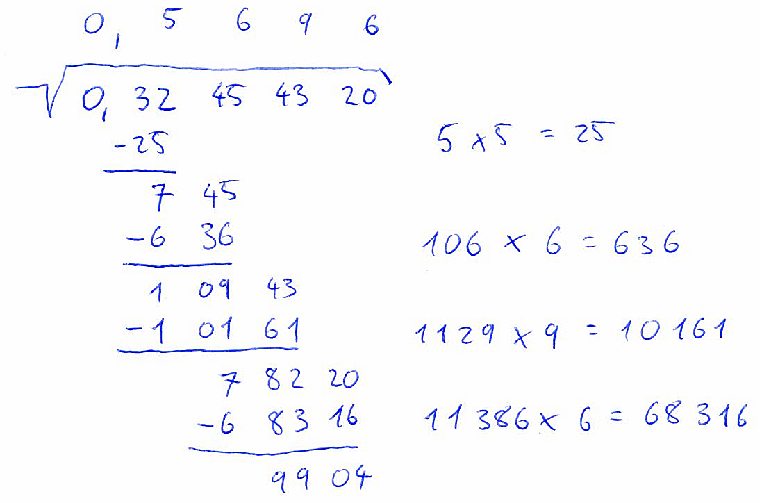 0, 5 6 9 6
√0, 32 45 43 20
-25
5 x 5 = 25
7 45
-6 36
106 x 6 = 636
1 09 43
-1 01 61
1129 x 9 = 10161
7 82 20
-6 83 16
11386 x 6 = 68316
99 04